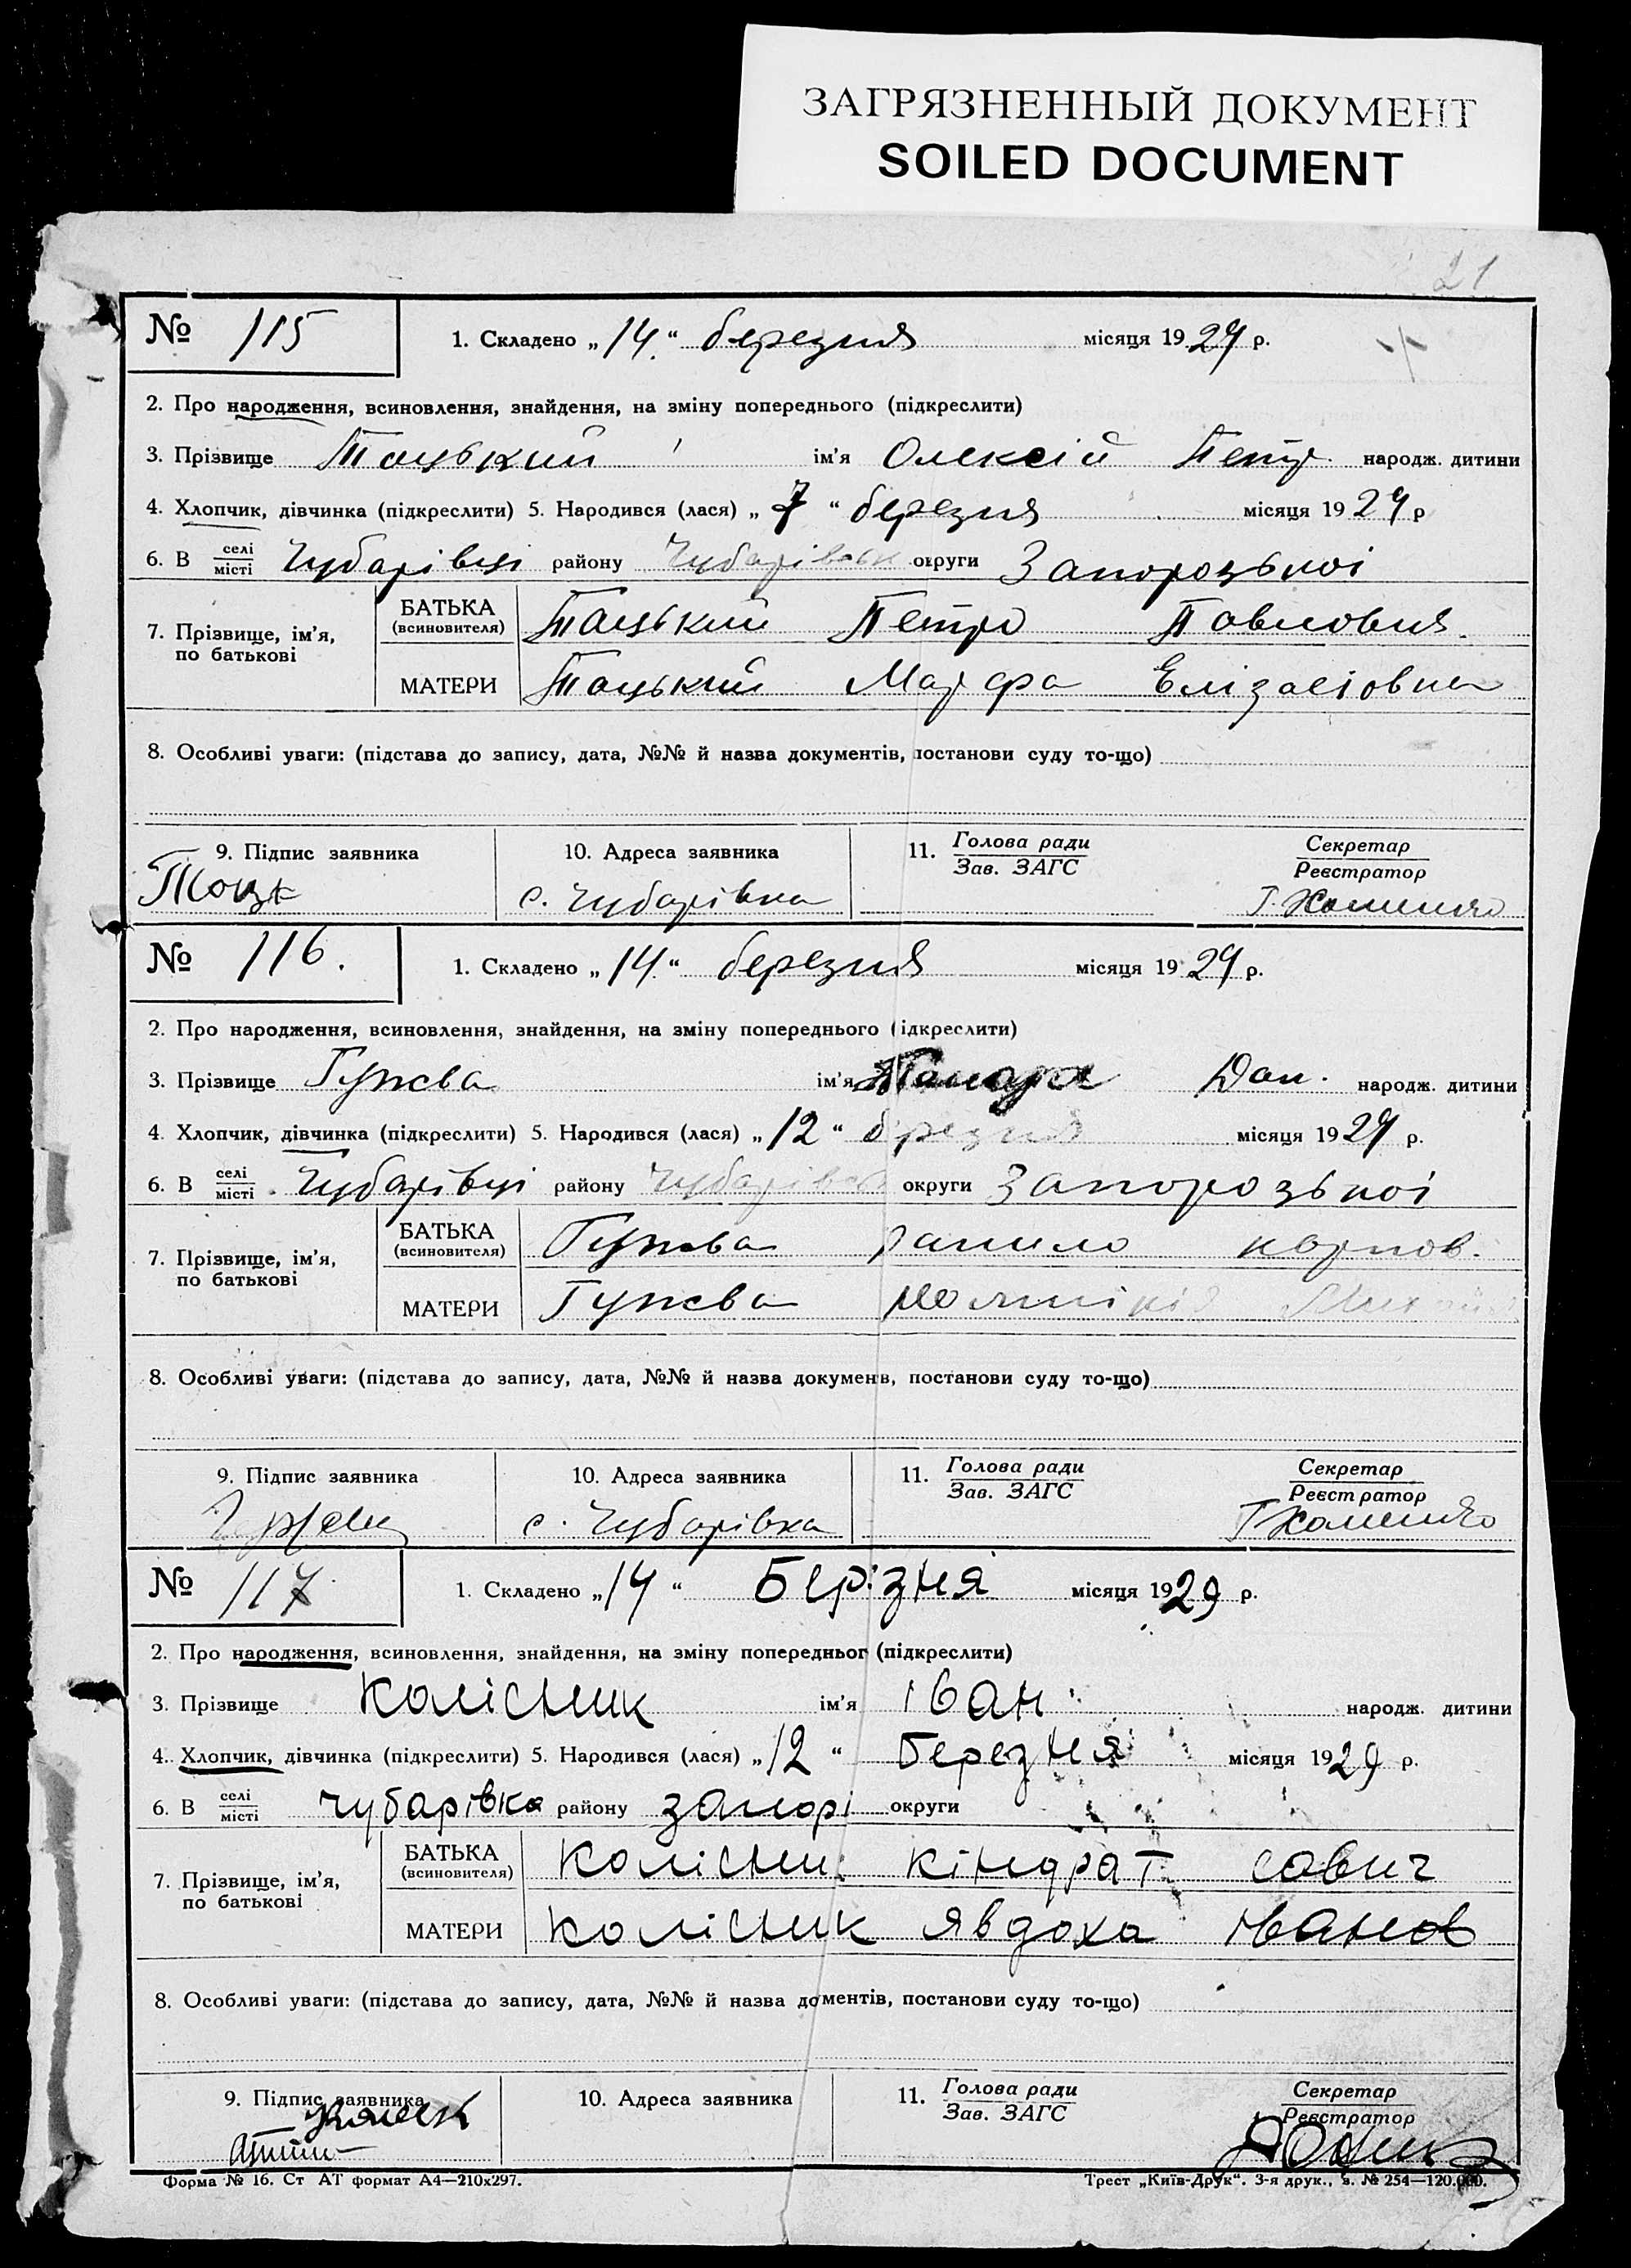 ЗАГРЯЗНЕННЫЙ ДОКУМЕНТ
SOILED DOCUMENT
21
№ 115 1. Складено „14.“ березня місяця 1929 р.
2. Про народження, всиновлення, знайдення, на зміну попереднього (підкреслити)
3. Прізвище Тацький ім'я Олексій Петр. народж. дитини
4. Хлопчик, дівчинка (підкреслити) 5. Народився (лася) „7“ березня місяця 1929 р
6. В селі/місті Чубарівці району Чубарівськ округи Запорозької
7. Прізвище, ім'я, по батькові
БАТЬКА (всиновителя) Тацький Петро Павлович.
МАТЕРИ Тацький Марфа
8. Особливі уваги: (підстава до запису, дата, №№ й назва документів, постанови суду то-що)
9. Підпис заявника 10. Адреса заявника 11. Голова ради/Зав. ЗАГС Секретар/Реєстратор
с. Чубарівка
№ 116. 1. Складено „14.“ березня місяця 1929 р.
2. Про народження, всиновлення, знайдення, на зміну попереднього ідкреслити)
3. Прізвище Гужва ім'я Тамара Дан. народж. дитини
4. Хлопчик, дівчинка (підкреслити) 5. Народився (лася) „12“ березня місяця 1929 р.
6. В селі/місті Чубарівці району Чубарівськ округи Запорозької
7. Прізвище, ім'я, по батькові
БАТЬКА (всиновителя) Гужва Данило карпов.
МАТЕРИ Гужва
8. Особливі уваги: (підстава до запису, дата, №№ й назва докуменів, постанови суду то-що)
9. Підпис заявника 10. Адреса заявника 11. Голова ради/Зав. ЗАГС Секретар/Реєстратор
с. Чубарівка
№ 117. 1. Складено „14“ Берізня місяця 1929 р.
2. Про народження, всиновлення, знайдення, на зміну попередньог (підкреслити)
3. Прізвище Колісник ім'я іван народж. дитини
4. Хлопчик, дівчинка (підкреслити) 5. Народився (лася) „12“ Березня місяця 1929 р.
6. В селі/місті чубарівка району запорі округи
7. Прізвище, ім'я, по батькові
БАТЬКА (всиновителя) Колісник кіндрат савич
МАТЕРИ Колісник явдоха иванов
8. Особливі уваги: (підстава до запису, дата, №№ й назва доментів, постанови суду то-що)
9. Підпис заявника 10. Адреса заявника 11. Голова ради/Зав. ЗАГС Секретар/Реєстратор
Форма № 16. Ст АТ формат А4—210х297. Трест „Київ-Друк“. 3-я друк., з. № 254—120.000.